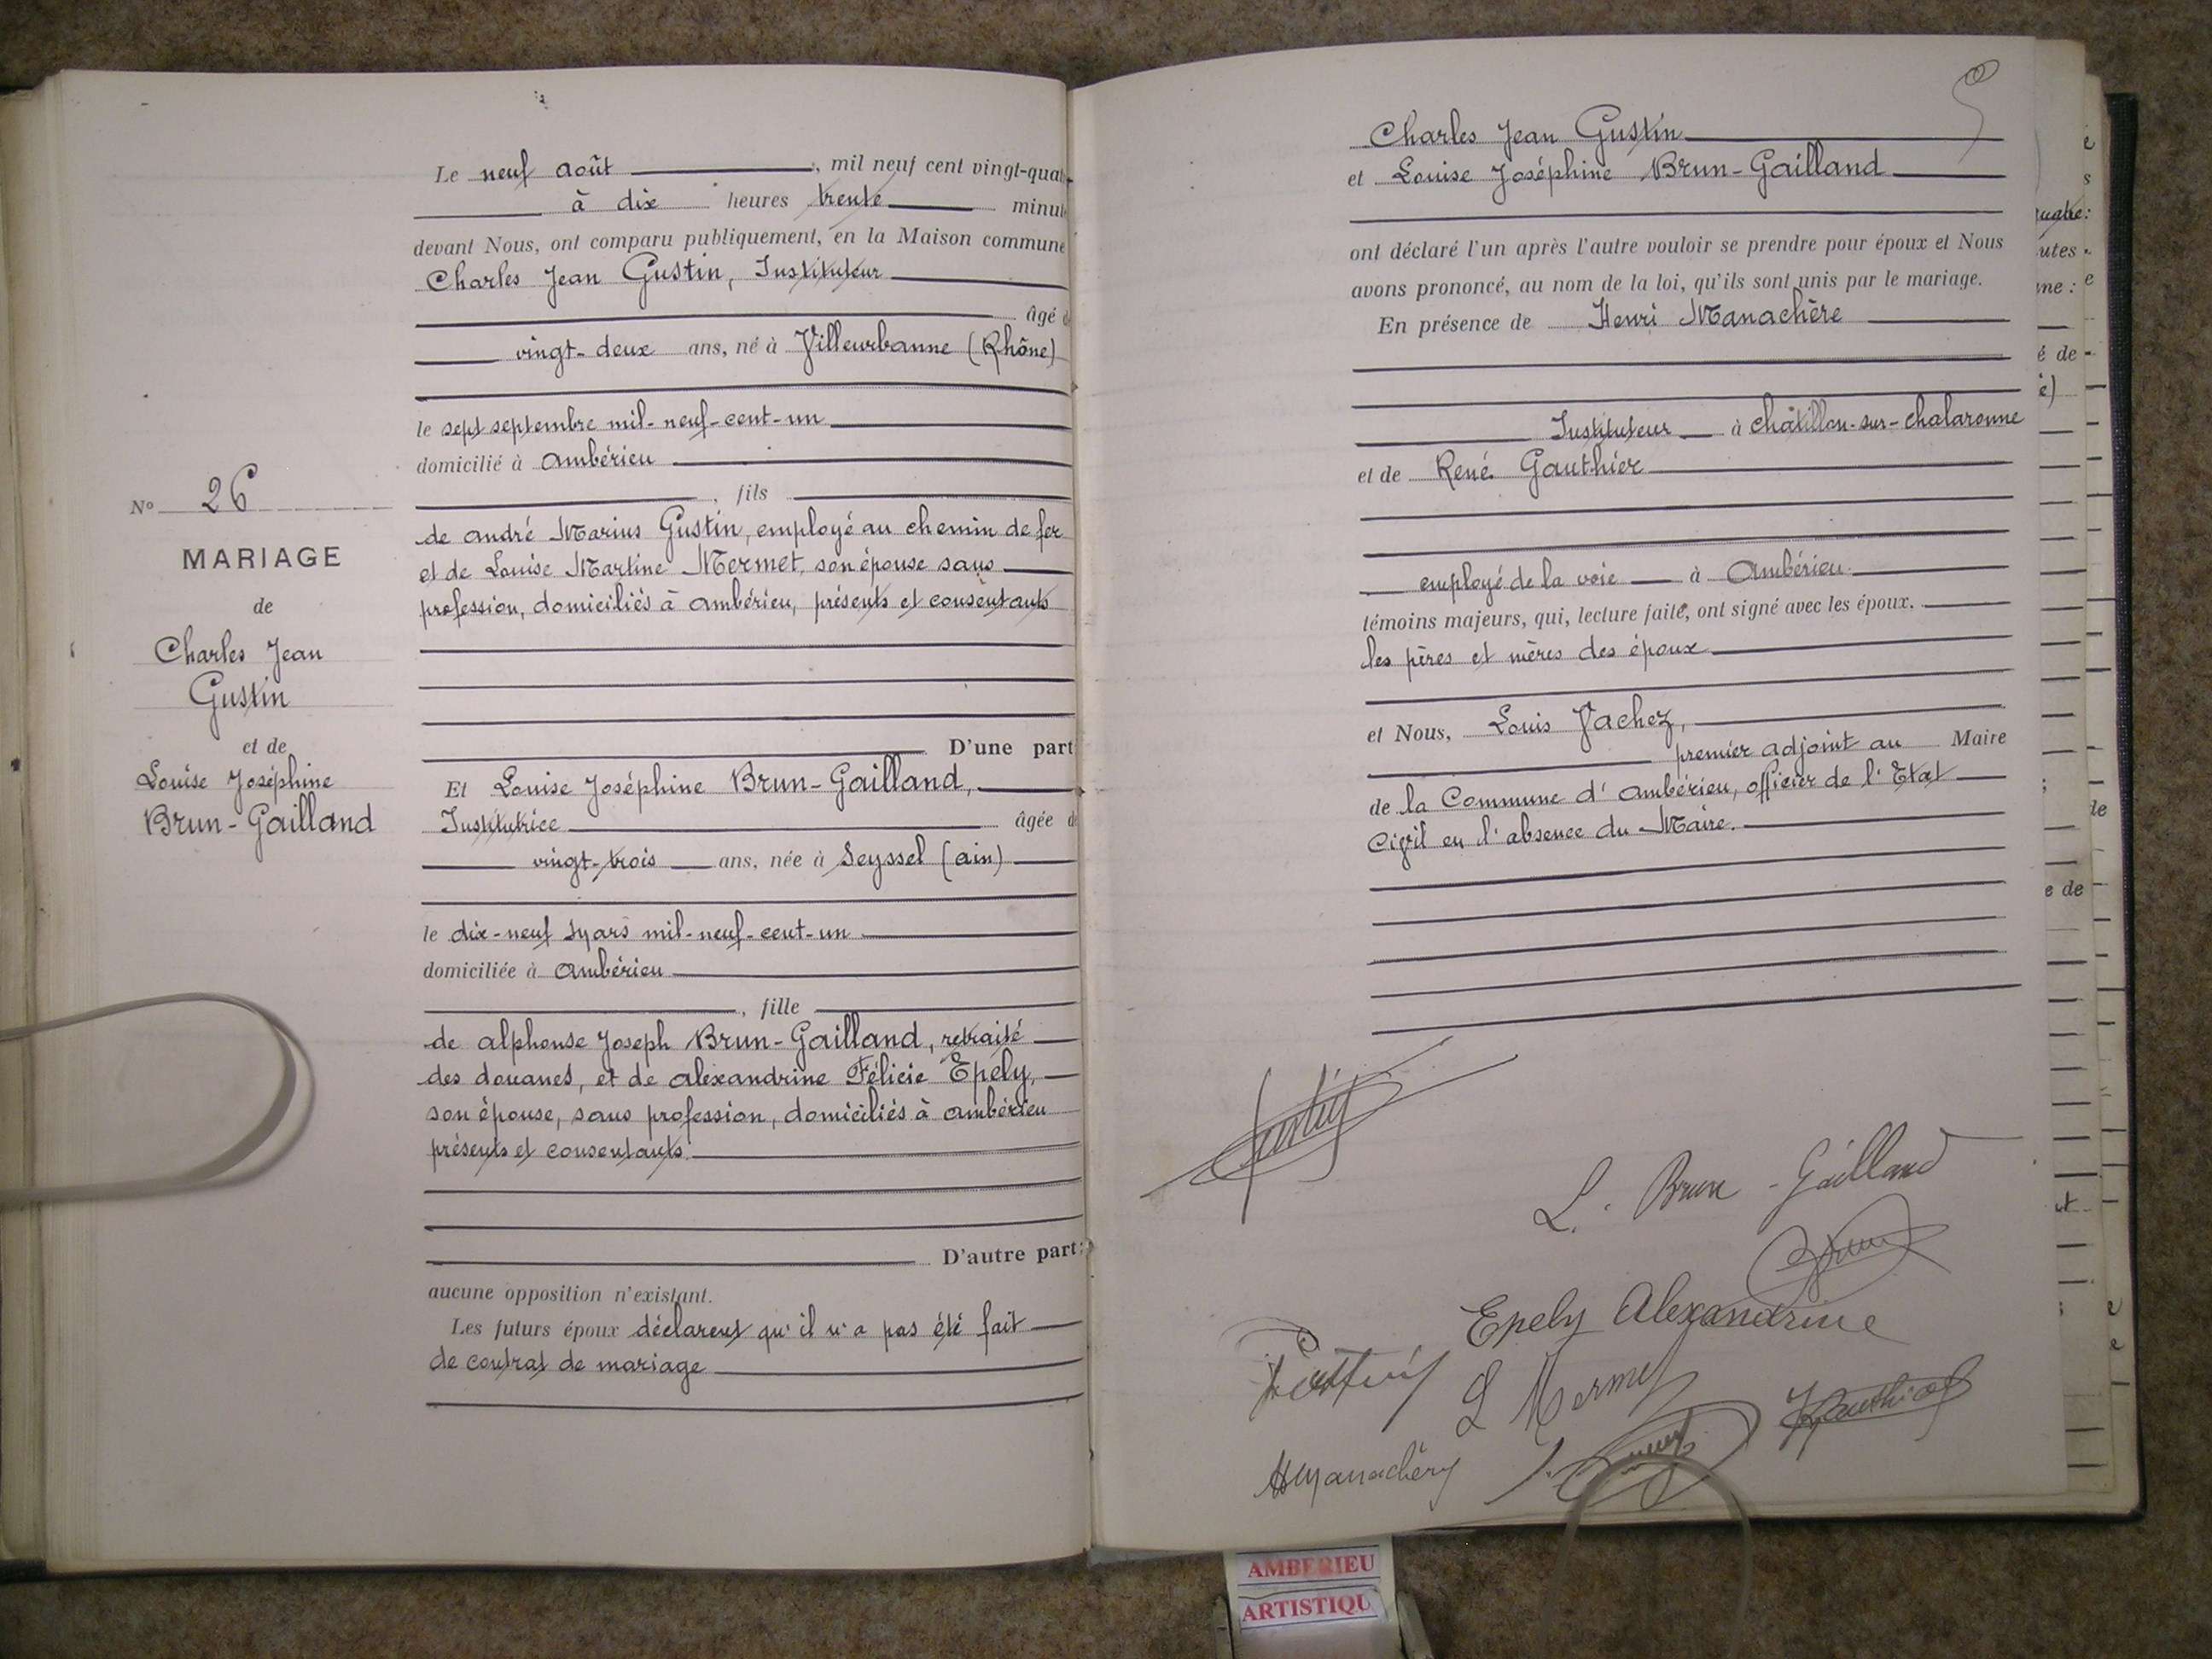 Le neuf août, mil neuf cent vingt-quat
à dix heures trente minut
devant Nous, ont comparu publiquement, en la Maison commune
Charles Jean Gustin, Instituteur
âgé d
vingt-deux ans, né à Villeurbanne (Rhône)
le sept septembre mil-neuf-cent-un
domicilié à Ambérieu
, fils
de André Marius Gustin, employé au chemin de fer
et de Louise Martine Mermet, son épouse sans
profession, domiciliés à Ambérieu, présents et consentants
D'une part
Et Louise Joséphine Brun-Gailland,
Institutrice âgée d
vingt-trois ans, née à Seyssel (Ain)
le dix-neuf Mars mil-neuf-cent-un
domiciliée à Ambérieu
, fille
de Alphonse Joseph Brun-Gailland, retraité
des douanes, et de Alexandrine Félicie Epely,
son épouse, sans profession, domiciliés à Ambérieu
présents et consentants.
D'autre part;
aucune opposition n'existant.
Les futurs époux déclarent qu'il n'a pas été fait
de contrat de mariage
No 26
MARIAGE
de
Charles Jean
Gustin
et de
Louise Joséphine
Brun-Gailland
Charles Jean Gustin
et Louise Joséphine Brun-Gailland
ont déclaré l'un après l'autre vouloir se prendre pour époux et Nous
avons prononcé, au nom de la loi, qu'ils sont unis par le mariage.
En présence de Henri Manachère
Instituteur à Châtillon-sur-Chalaronne
et de René Gauthier
employé de la voie à Ambérieu
témoins majeurs, qui, lecture faite, ont signé avec les époux.
les pères et mères des époux
et Nous, Louis Vachez,
premier adjoint au Maire
de la Commune d'Ambérieu, officier de l'Etat
Civil en l'absence du Maire.
Gustin
L. Brun-Gailland
Brun
Epely Alexandrine
L Mermet
Gauthier
HManachère
AMBERIEU
ARTISTIQU